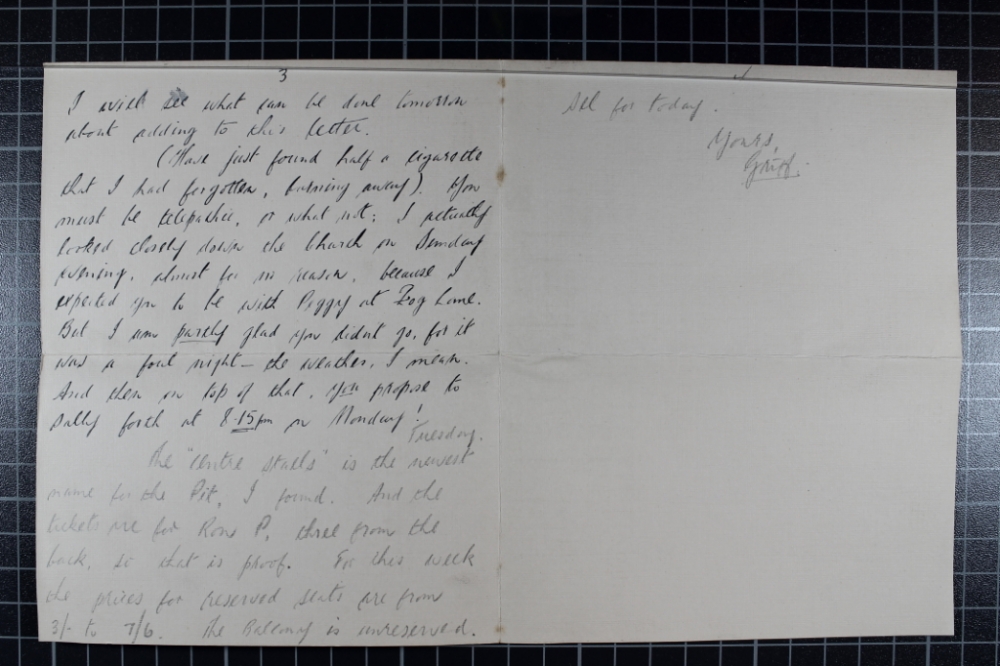 3
I will see what can be done tomorrow
about adding to this letter.
(Have just found half a cigarette
that I had forgotten, burning away). You
must be telepathic, or what not; I actually
looked closely down the Church on Sunday
evening, almost for no reason, because I
expected you to be with Peggy at Evog home.
But I am partly glad you didn't go, for it
was a foul night – the weather, I mean.
And then on top of that, you propose to
sally forth at 8-15pm on Monday!
Tuesday.
The "centre stalls" is the newest
name for the Pit, I found. And the
tickets are for Row P, three from the
back, so that is proof. For this week
the prices for reserved seats are from
3/- to 7/6. The Balcony is unreserved.
4
All for today.
Yours,